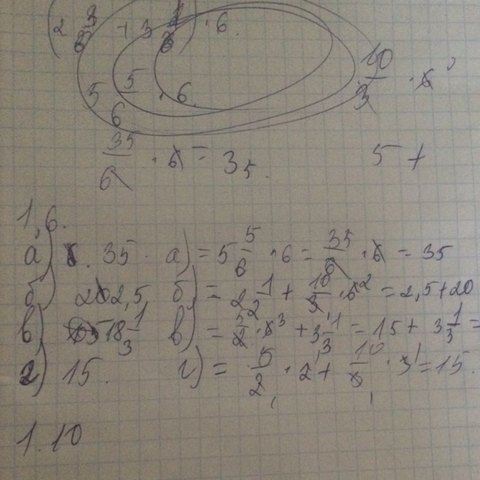 (2 3/6 + 3 2/6) · 6.
5 5/6 · 6. 10/3 · 6
35/6 · 6 = 35. 5 +
1,6.
а) 35. а) = 5 5/6 · 6 = 35/6 · 6 = 35
б) 22,5 б) = 2 1/2 + 10/3 · 6 2 = 2,5 + 20
в) 18 1/3 в) = 5/2 · 6 3 + 3 1/3 = 15 + 3 1/3 =
г) 15. г) = 5/2 · 2 + 10/3 · 3 1 = 15.
1.10